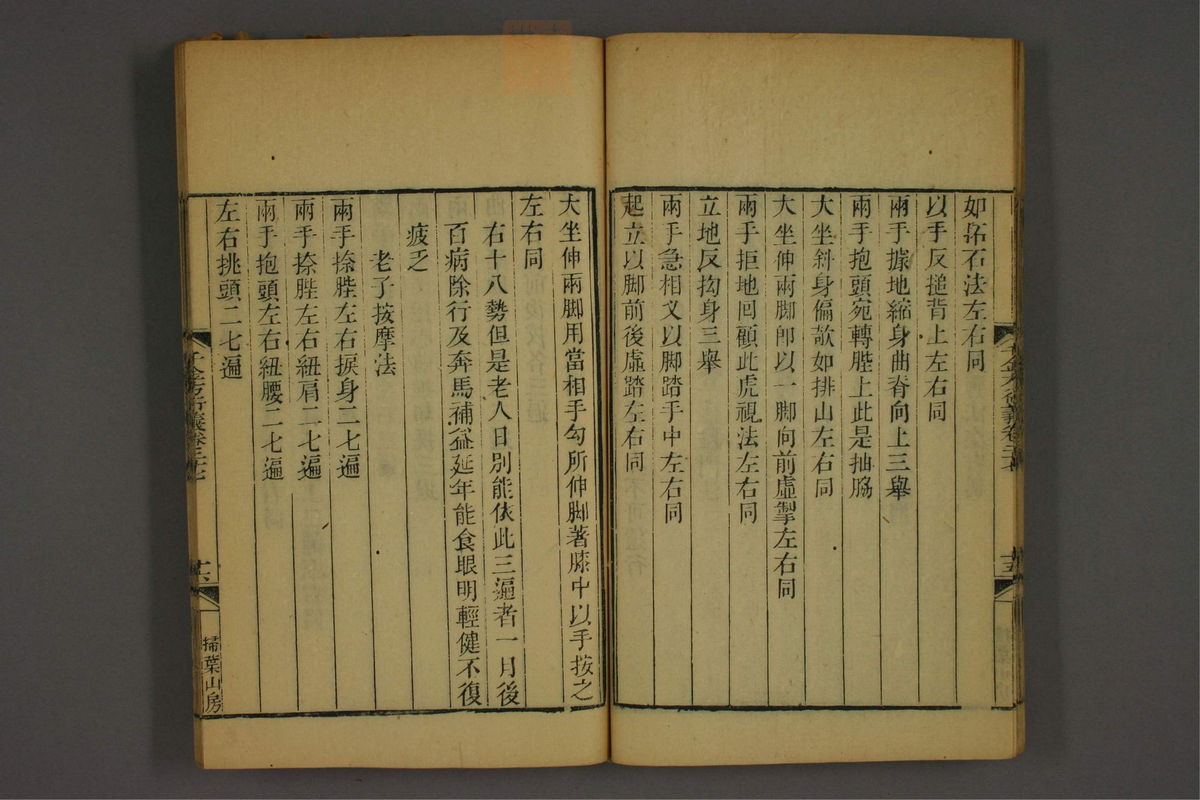 如拓石法左右同
以手反搥背上左右同
兩手據地縮身曲脊向上三舉
兩手抱頭宛轉䏶上此是抽脇
大坐斜身偏欹如排山左右同
大坐伸兩脚卽以一脚向前虛掣左右同
兩手拒地回顧此虎視法左右同
立地反抝身三舉
兩手急相叉以脚踏手中左右同
起立以脚前後虛踏左右同
大坐伸兩脚用當相手勾所伸脚著膝中以手按之
左右同
右十八勢但是老人日別能依此三遍者一月後
百病除行及奔馬補益延年能食眼明輕健不復
疲乏
老子按摩法
兩手捺䏶左右捩身二七遍
兩手捺䏶左右紐肩二七遍
兩手抱頭左右紐腰二七遍
左右挑頭二七遍
千金方衍義卷二十七
十六
掃葉山房